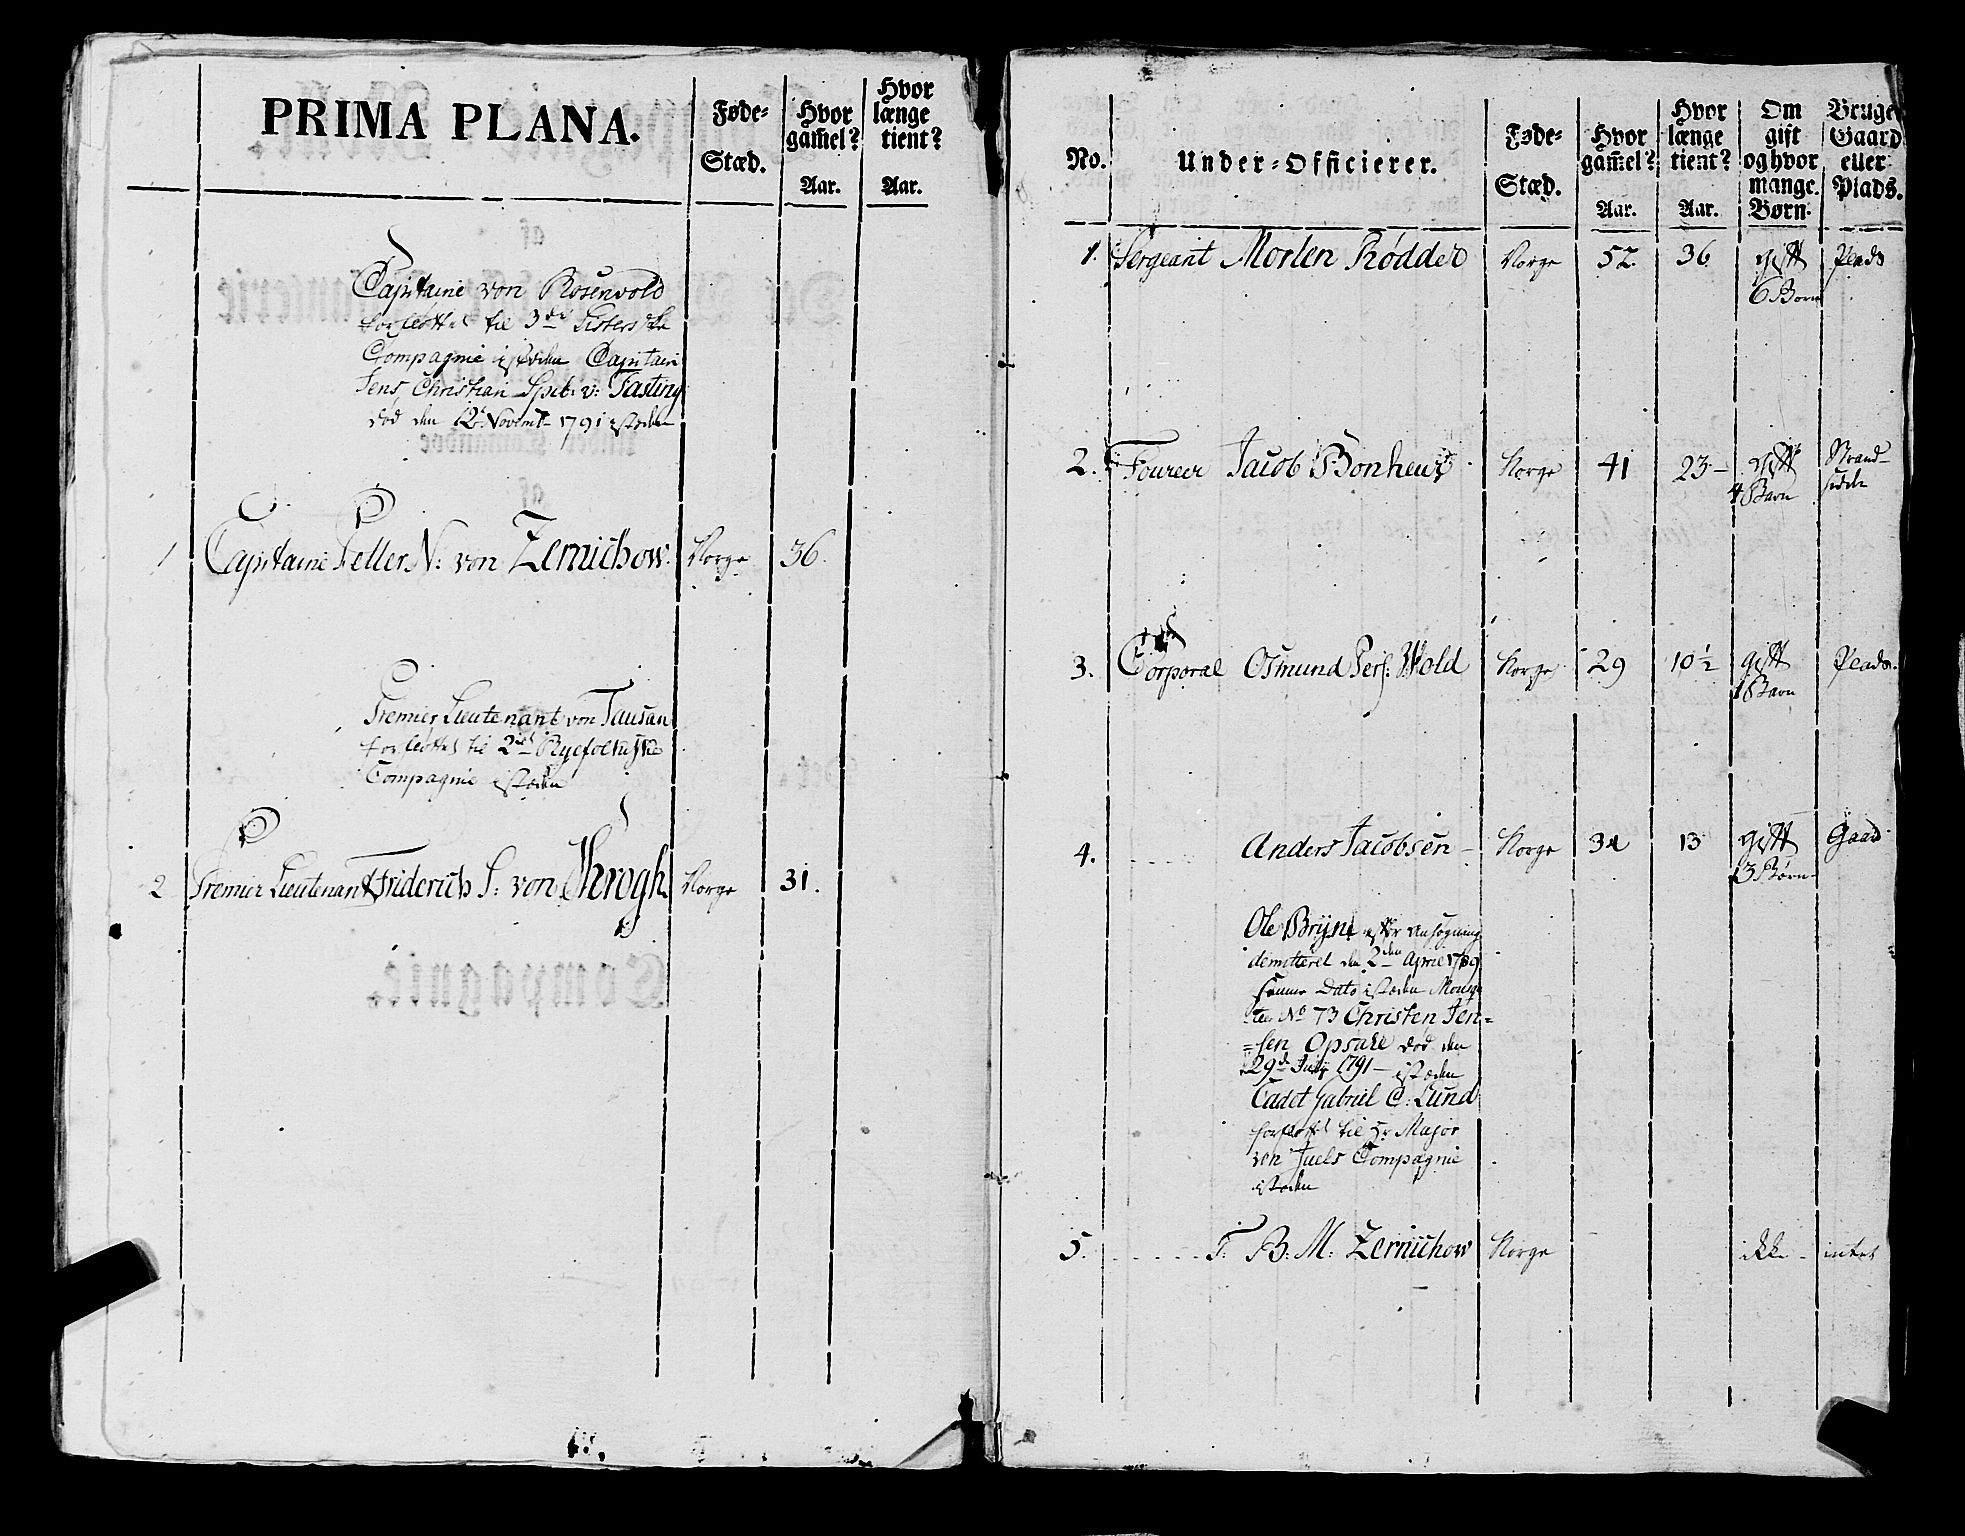 PRIMA PLANA.
Føde-
Stæd.
Hvor
gam̃el?
Aar.
Hvor
længe
tient?
Aar.
Capitaine von Rosenvold
forflöttet til 3die Listerske
Compagnie istæden Capitain
Jens Christian v: Fasting
död den 12te Novembr 1791 istæden
1 Capitaine Petter N: von Zernichow. Norge 36.
Premier Lieutenant von Tausan
forflöttet til 2det Ryefølkiske
Compagnie istæden
2 Premier Lieutenant Friderich S: von Khrogh. Norge 31.
Compagnie.
No.
Under-Officierer.
Føde-
Stæd.
Hvor
gam̃el?
Aar.
Hvor
længe
tient?
Aar.
Om
gift
og hvor
mange.
Børn.
Bruger
Gaard
eller
Plads.
1. Sergeant Morten Rødder Norge 52. 36 gift Plads
6 Børn
2. Fourier Jacob Bonheur Norge 41 23- gift Strand-
4 Barn sidde
3. Corporal Osmund Pers: Wold Norge 29 10½ gift Plads.
1 Barn
4. Anders Jacobsen - Norge 34 13 gift Gaard
3 Børn
Ole Bryni efter ansøgning
demitteret den 2den April 1789
samme Dato istæden Mousqe
ten No 73 Christen Jen=
=sen Opsale död den
29de July 1791 - istæden
Cadet Gabriel C: Lund
forflöttet til Hr Major
von Juels Compagnie
istæden
5. T: B: M: Zernichow Norge ikke - intet